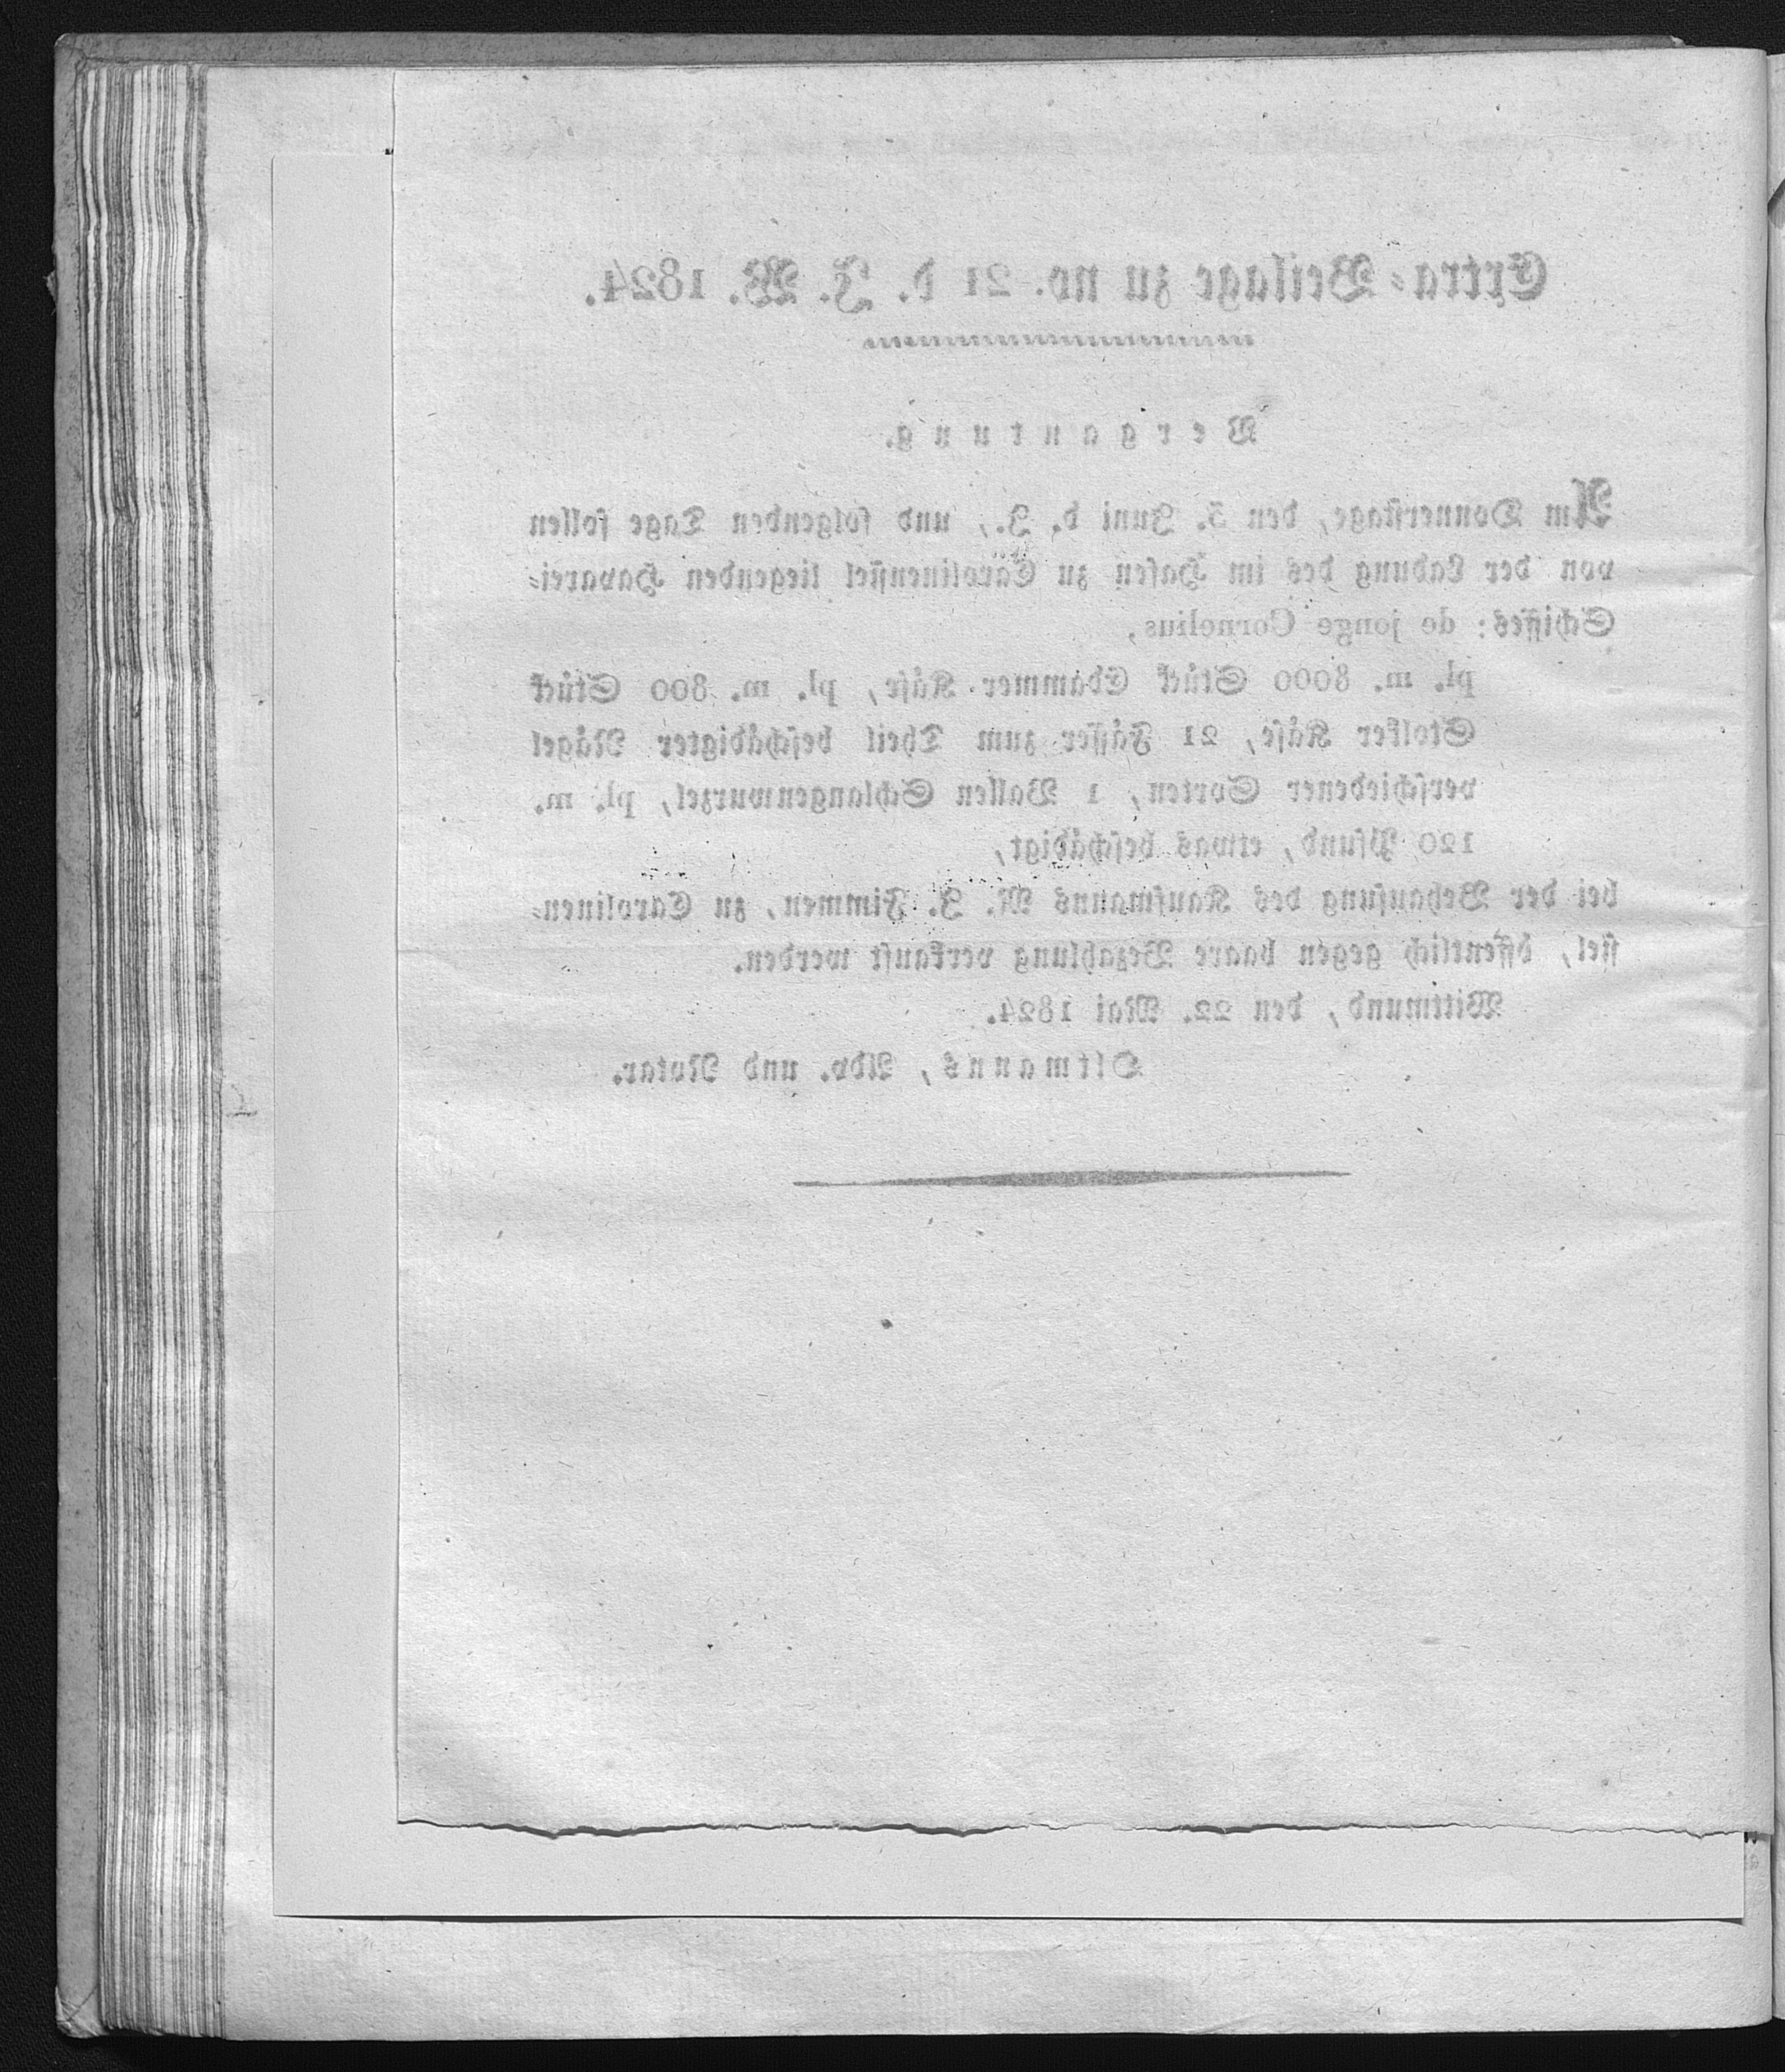 Extra-Beilage zu no. 21 d. J. W. 1824.
Vergantung.
Am Donnerstage, den 3. Juni d. J., und folgenden Tage sollen
von der Ladung des im Hafen zu Carolinensiel liegenden Havarei-
Schiffes: de jonge Cornelius,
pl. m. 8000 Stück Edammer Käse, pl. m. 800 Stück
Stolker Käse, 21 Fässer zum Theil beschädigter Nägel
verschiedener Sorten, 1 Ballen Schlangenwurzel, pl. m.
120 Pfund, etwas beschädigt,
bei der Behausung des Kaufmanns M. J. Fimmen, zu Carolinen-
siel, öffentlich gegen baare Bezahlung verkauft werden.
Wittmund, den 22. Mai 1824.
Oltmanns, Adv. und Notar.